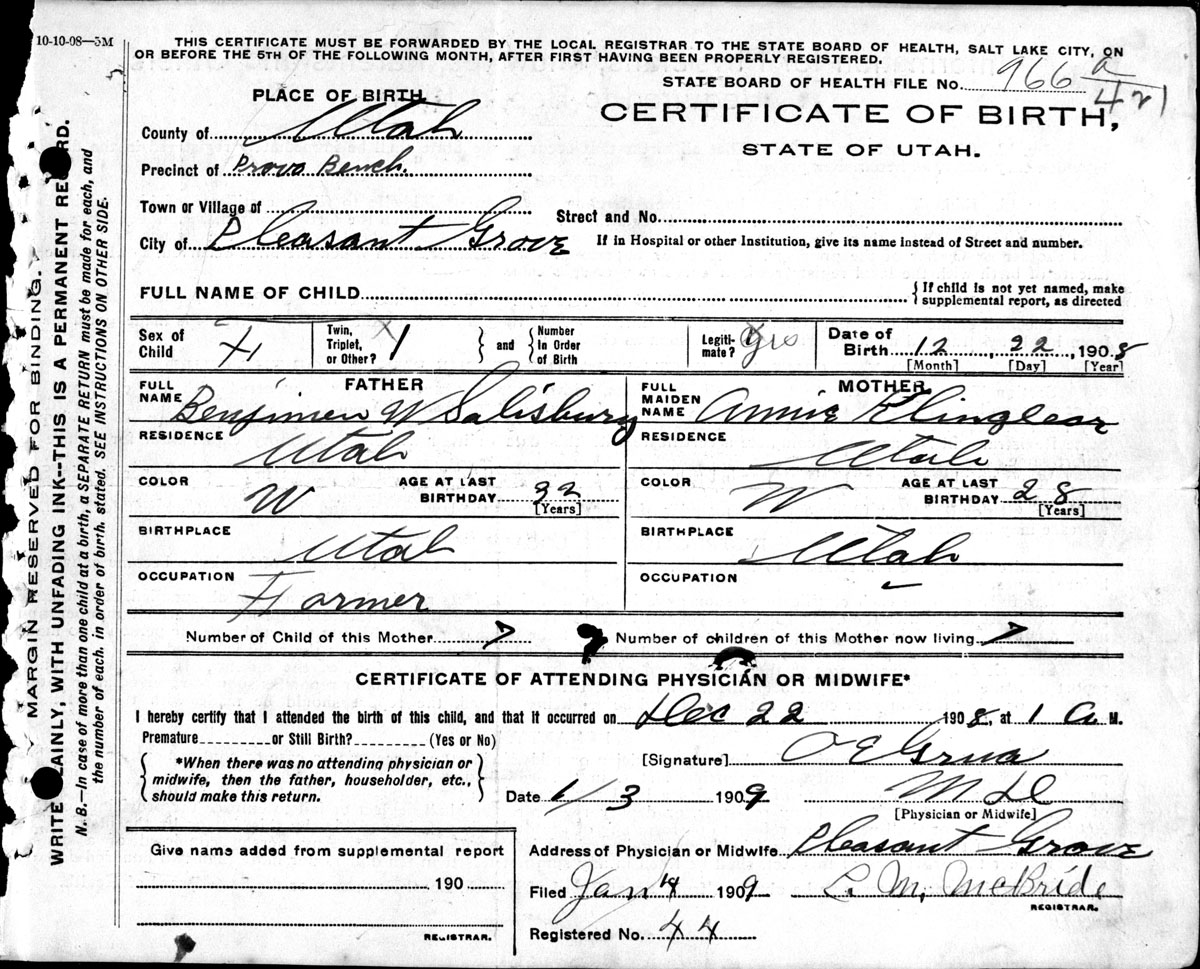 10-10-08—5M
THIS CERTIFICATE MUST BE FORWARDED BY THE LOCAL REGISTRAR TO THE STATE BOARD OF HEALTH, SALT LAKE CITY, ON
OR BEFORE THE 5TH OF THE FOLLOWING MONTH, AFTER FIRST HAVING BEEN PROPERLY REGISTERED.
STATE BOARD OF HEALTH FILE No. 966 a/421
PLACE OF BIRTH
CERTIFICATE OF BIRTH,
STATE OF UTAH.
County of Utah
Precinct of Provo Bench.
Town or Village of
Street and No.
City of Pleasant Grove
If in Hospital or other Institution, give its name instead of Street and number.
FULL NAME OF CHILD
{If child is not yet named, make
supplemental report, as directed
Sex of Child F
Twin, Triplet, or Other? 1
and
Number In Order of Birth
Legitimate? Yes
Date of Birth 12, 22, 1908
[Month] [Day] [Year]
FATHER
FULL NAME Benjimen W Salisbury
MOTHER
FULL MAIDEN NAME Annie Klinglear
RESIDENCE Utah
RESIDENCE Utah
COLOR W
AGE AT LAST BIRTHDAY 32 [Years]
COLOR W
AGE AT LAST BIRTHDAY 28 [Years]
BIRTHPLACE Utah
BIRTHPLACE Utah
OCCUPATION Farmer
OCCUPATION
Number of Child of this Mother 7
Number of children of this Mother now living 7
CERTIFICATE OF ATTENDING PHYSICIAN OR MIDWIFE*
I hereby certify that I attended the birth of this child, and that it occurred on Dec 22 1908, at 1 A M.
Premature or Still Birth? (Yes or No)
*When there was no attending physician or
midwife, then the father, householder, etc.,
should make this return.
[Signature] O E Grua
Date 1/3 1909
M D
[Physician or Midwife]
Give name added from supplemental report
190
REGISTRAR.
Address of Physician or Midwife Pleasant Grove
Filed Jan 4 1909
L. M. McBride
REGISTRAR.
Registered No. 44
MARGIN RESERVED FOR BINDING.
WRITE PLAINLY, WITH UNFADING INK--THIS IS A PERMANENT RECORD.
N. B.—In case of more than one child at a birth, a SEPARATE RETURN must be made for each, and
the number of each, in order of birth, stated. SEE INSTRUCTIONS ON OTHER SIDE.